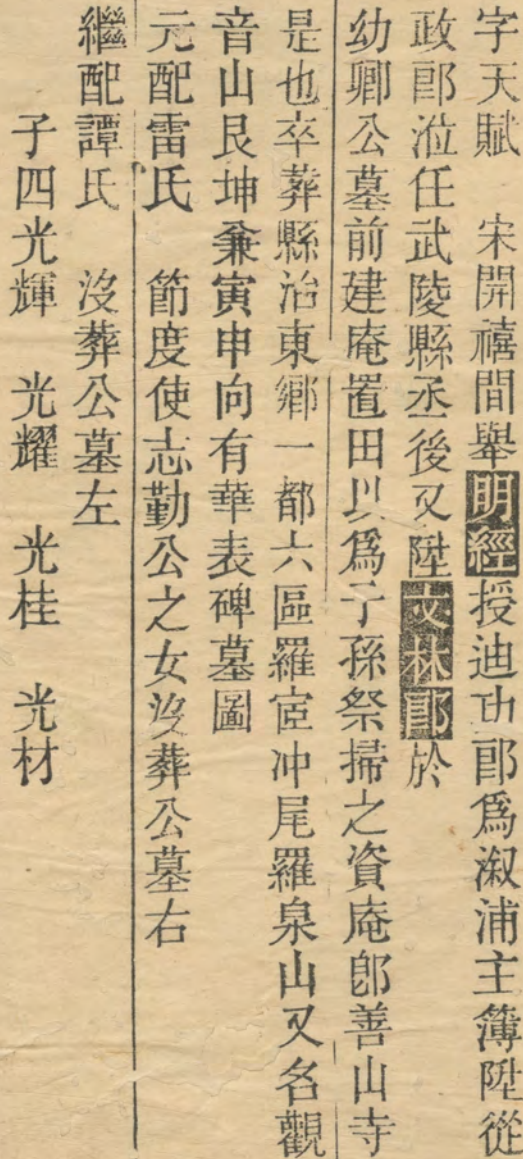 字天賦　宋開禧間舉明經授迪功郎爲溆浦主簿陞從
政郎涖任武陵縣丞後又陞文林郎於
幼卿公墓前建庵置田以爲子孫祭掃之資庵卽善山寺
是也卒葬縣治東鄉一都六區羅宦冲尾羅泉山又名觀
音山艮坤兼寅申向有華表碑墓圖
元配雷氏　節度使志勤公之女沒葬公墓右
繼配譚氏　沒葬公墓左
子四光輝　光耀　光桂　光材